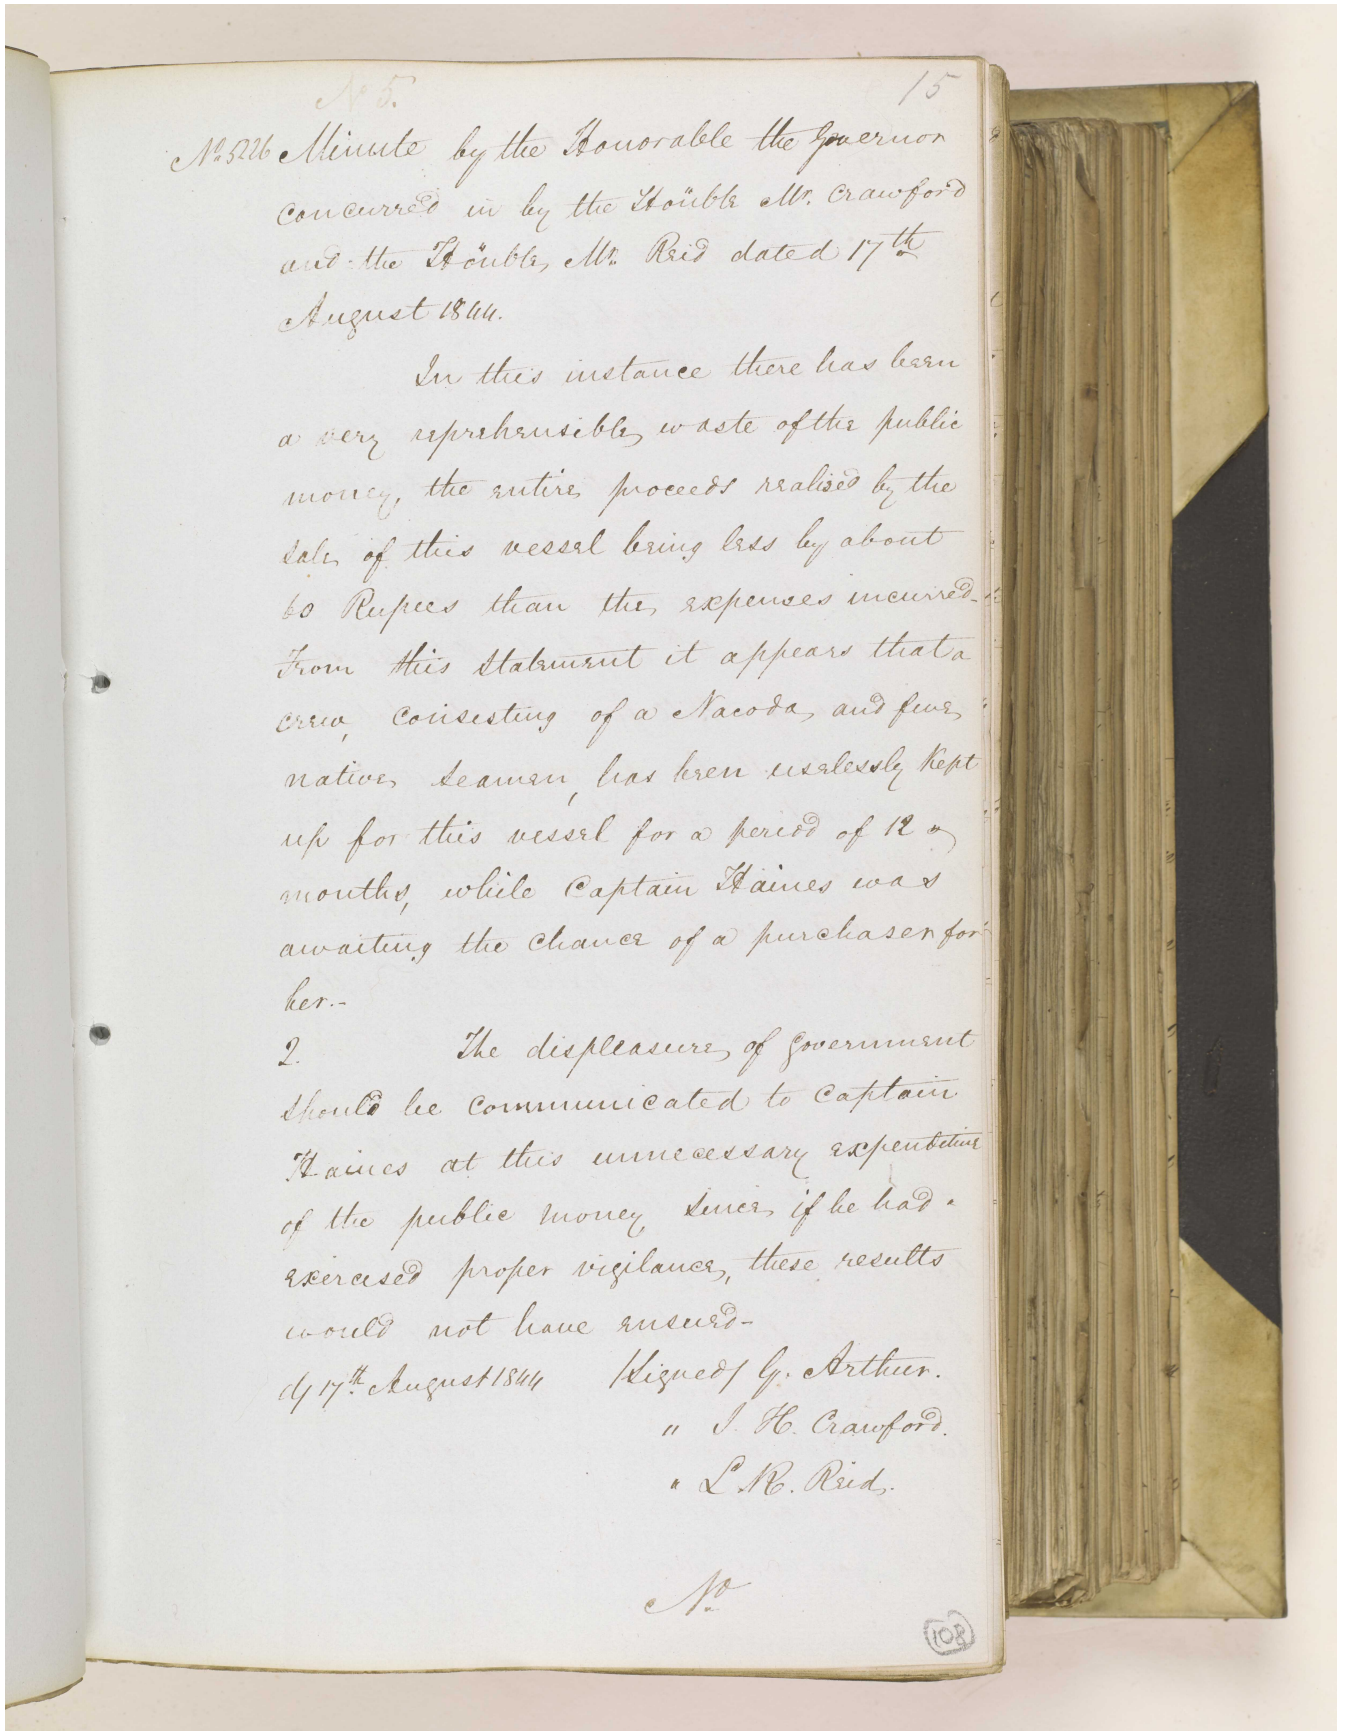 No 5.
15
No 5226 Minute by the Honorable the Governor
concurred in by the Hönble Mr. Crawford
and the Hönble Mr. Reid dated 17th
August 1844.
In this instance there has been
a very reprehensible waste of the public
money, the entire proceeds realised by the
sale of this vessel being less by about
60 Rupees than the expenses incurred-
From this statement it appears that a
crew, consisting of a Nacoda and five
native seamen, has been uselessly kept
up for this vessel for a period of 12
months, while Captain Haines was
awaiting the chance of a purchaser for
her.-
2. The displeasure of Government
should be communicated to Captain
Haines at this unnecessary expenditure
of the public money, since if he had
exercised proper vigilance, these results
would not have ensued-
17th August 1844 /Signed/ G. Arthur.
" J. H. Crawford.
" L. R. Reid.
No
108